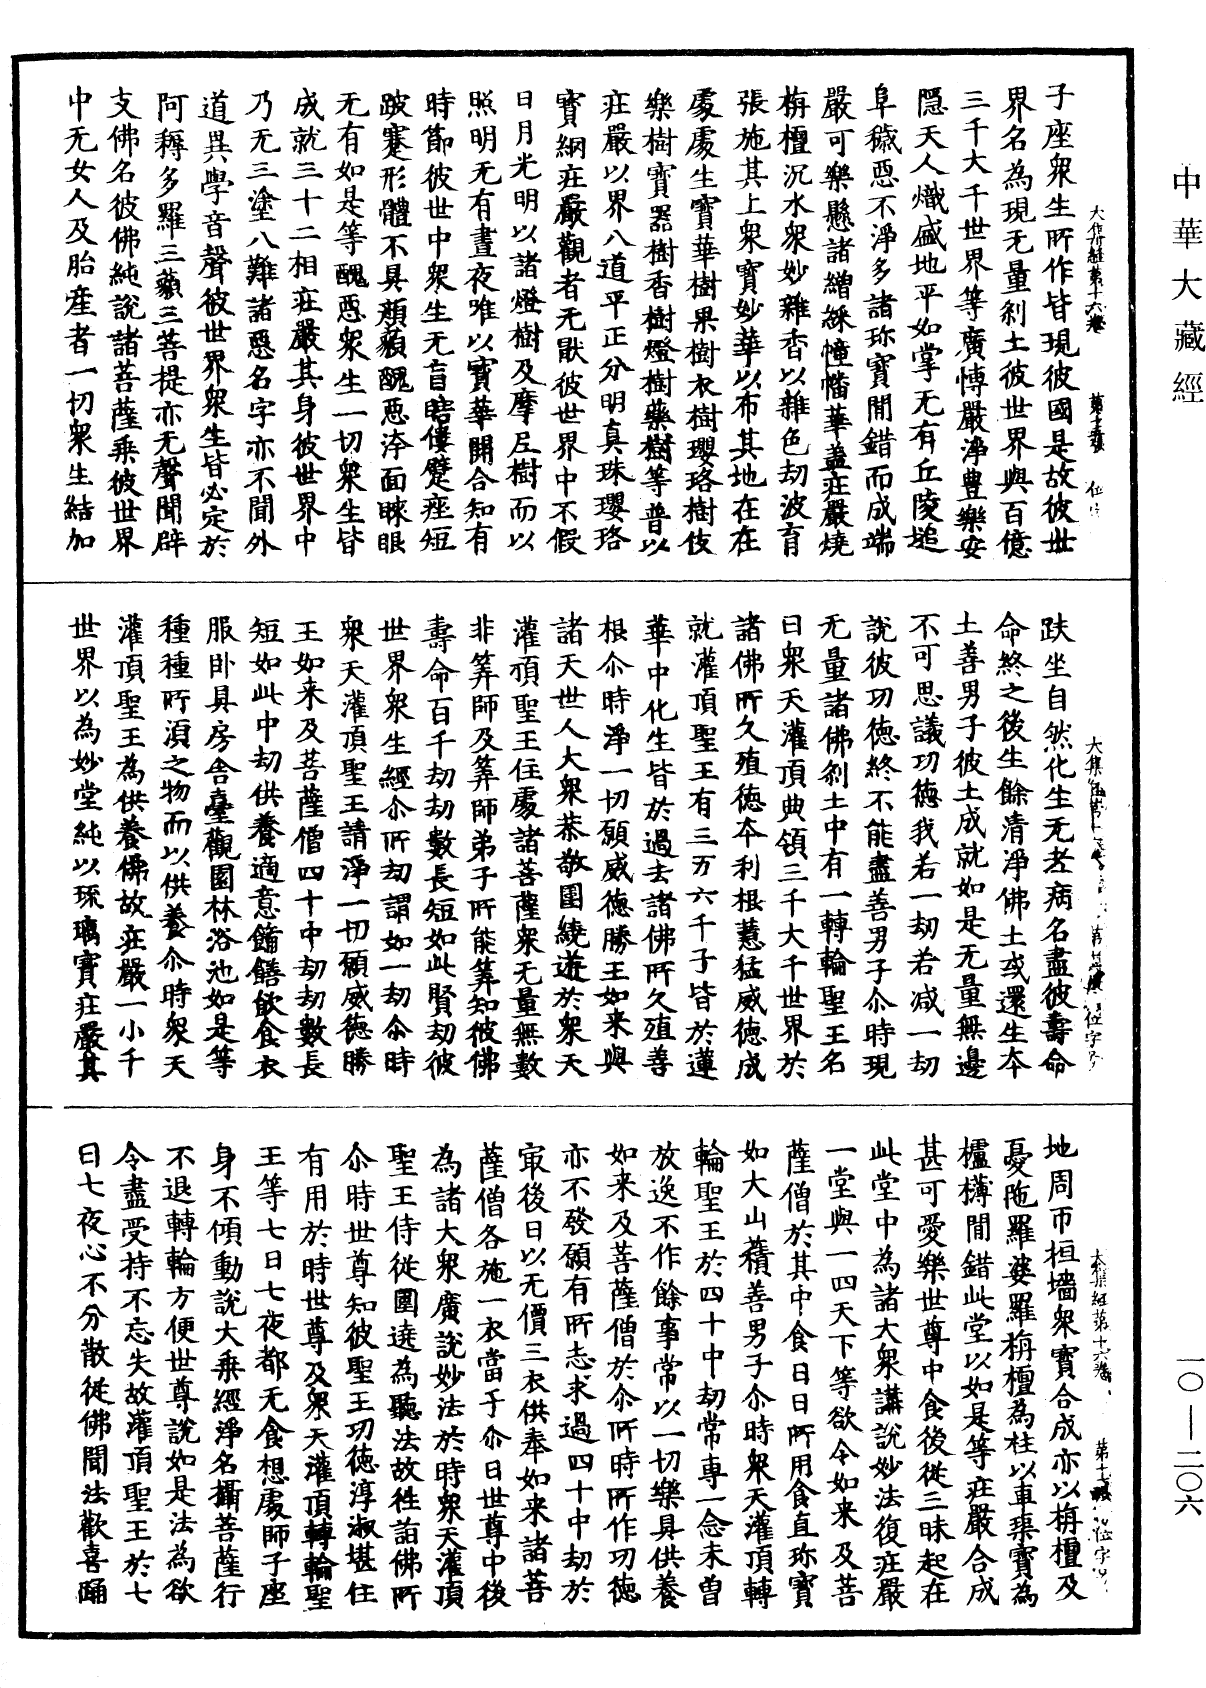 中華大藏經
大集經第十六卷 第十五張 位
子座衆生所作皆現彼國是故彼世
界名為現无量刹土彼世界與百億
三千大千世界等廣博嚴淨豊樂安
隱天人熾盛地平如掌无有丘陵塠
阜穢惡不淨多諸珎寶閒錯而成端
嚴可樂懸諸繒綵幢幡華盖莊嚴燒
栴檀沉水衆妙雜香以雜色劫波育
張施其上衆寶妙華以布其地在在
處處生寶華樹果樹衣樹瓔珞樹伎
樂樹寶器樹香樹燈樹藥樹等普以
莊嚴以界八道平正分明真珠瓔珞
寶網莊嚴觀者无猒彼世界中不假
日月光明以諸燈樹及摩尼樹而以
照明无有晝夜唯以寶華開合知有
時節彼世中衆生无盲瞎僂躄痤短
跛蹇形體不具顔貌醜惡洿面睞眼
无有如是等醜惡衆生一切衆生皆
成就三十二相莊嚴其身彼世界中
乃无三塗八難諸惡名字亦不聞外
道異學音聲彼世界衆生皆必定於
阿耨多羅三藐三菩提亦无聲聞辟
支佛名彼佛純說諸菩薩乘彼世界
中无女人及胎産者一切衆生結加
大集經第十六卷 第 張 位字号
趺坐自然化生无老病名盡彼壽命
命終之後生餘清淨佛土或還生夲
土善男子彼土成就如是无量無邊
不可思議功德我若一劫若减一劫
說彼功德終不能盡善男子尒時現
无量諸佛刹土中有一轉輪聖王名
曰衆天灌頂典領三千大千世界於
諸佛所久殖德夲利根慧猛威德成
就灌頂聖王有三万六千子皆於蓮
華中化生皆於過去諸佛所久殖善
根尒時淨一切願威德勝王如来與
諸天世人大衆恭敬圍繞遊於衆天
灌頂聖王住處諸菩薩衆无量無數
非筭師及筭師弟子所能筭知彼佛
壽命百千劫劫數長短如此賢劫彼
世界衆生經尒所劫謂如一劫尒時
衆天灌頂聖王請淨一切願威德勝
王如来及菩薩僧四十中劫劫數長
短如此中劫供養適意餚饍飲食衣
服卧具房舎臺觀園林浴池如是等
種種所湏之物而以供養尒時衆天
灌頂聖王為供養佛故莊嚴一小千
世界以為妙堂純以琉璃寶莊嚴其
大集經第十六卷 第十 張 位字号
地周帀垣墻衆寶合成亦以栴檀及
憂陁羅婆羅栴檀為柱以車𤦲寶為
櫨欂閒錯此堂以如是等莊嚴合成
甚可愛樂世尊中食後從三昧起在
此堂中為諸大衆講說妙法復莊嚴
一堂與一四天下等欲令如来及菩
薩僧於其中食日日所用食直珎寶
如大山積善男子尒時衆天灌頂轉
輪聖王於四十中劫常專一念未曽
放逸不作餘事常以一切樂具供養
如来及菩薩僧於尒所時所作功德
亦不發願有所志求過四十中劫於
㝡後日以无價三衣供奉如来諸菩
薩僧各施一衣當于尒日世尊中後
為諸大衆廣說妙法於時衆天灌頂
聖王侍從圍遶為聽法故徃詣佛所
尒時世尊知彼聖王功德淳淑堪住
有用於時世尊及衆天灌頂轉輪聖
王等七日七夜都无食想處師子座
身不傾動說大乗經淨名攝菩薩行
不退轉輪方便世尊說如是法為欲
令盡受持不忘失故灌頂聖王於七
日七夜心不分散從佛聞法歡喜踊
一〇—二〇六